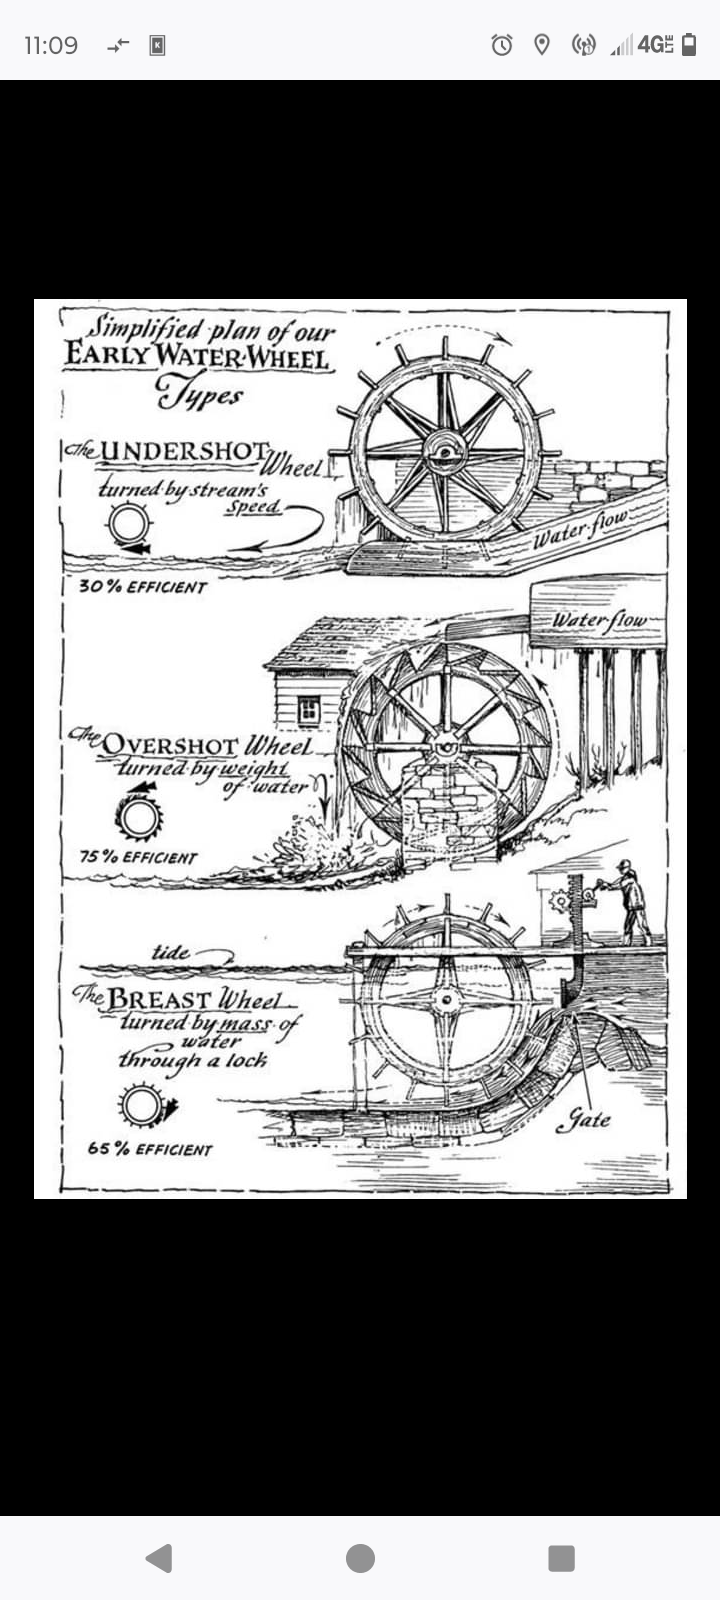 11:09
4G LTE
Simplified plan of our
EARLY WATER-WHEEL
Types
The UNDERSHOT Wheel
turned by stream's
Speed
30% EFFICIENT
Water-flow
Water-flow
The OVERSHOT Wheel
turned by weight
of water
75% EFFICIENT
tide
The BREAST Wheel
turned by mass of
water
through a lock
Gate
65% EFFICIENT